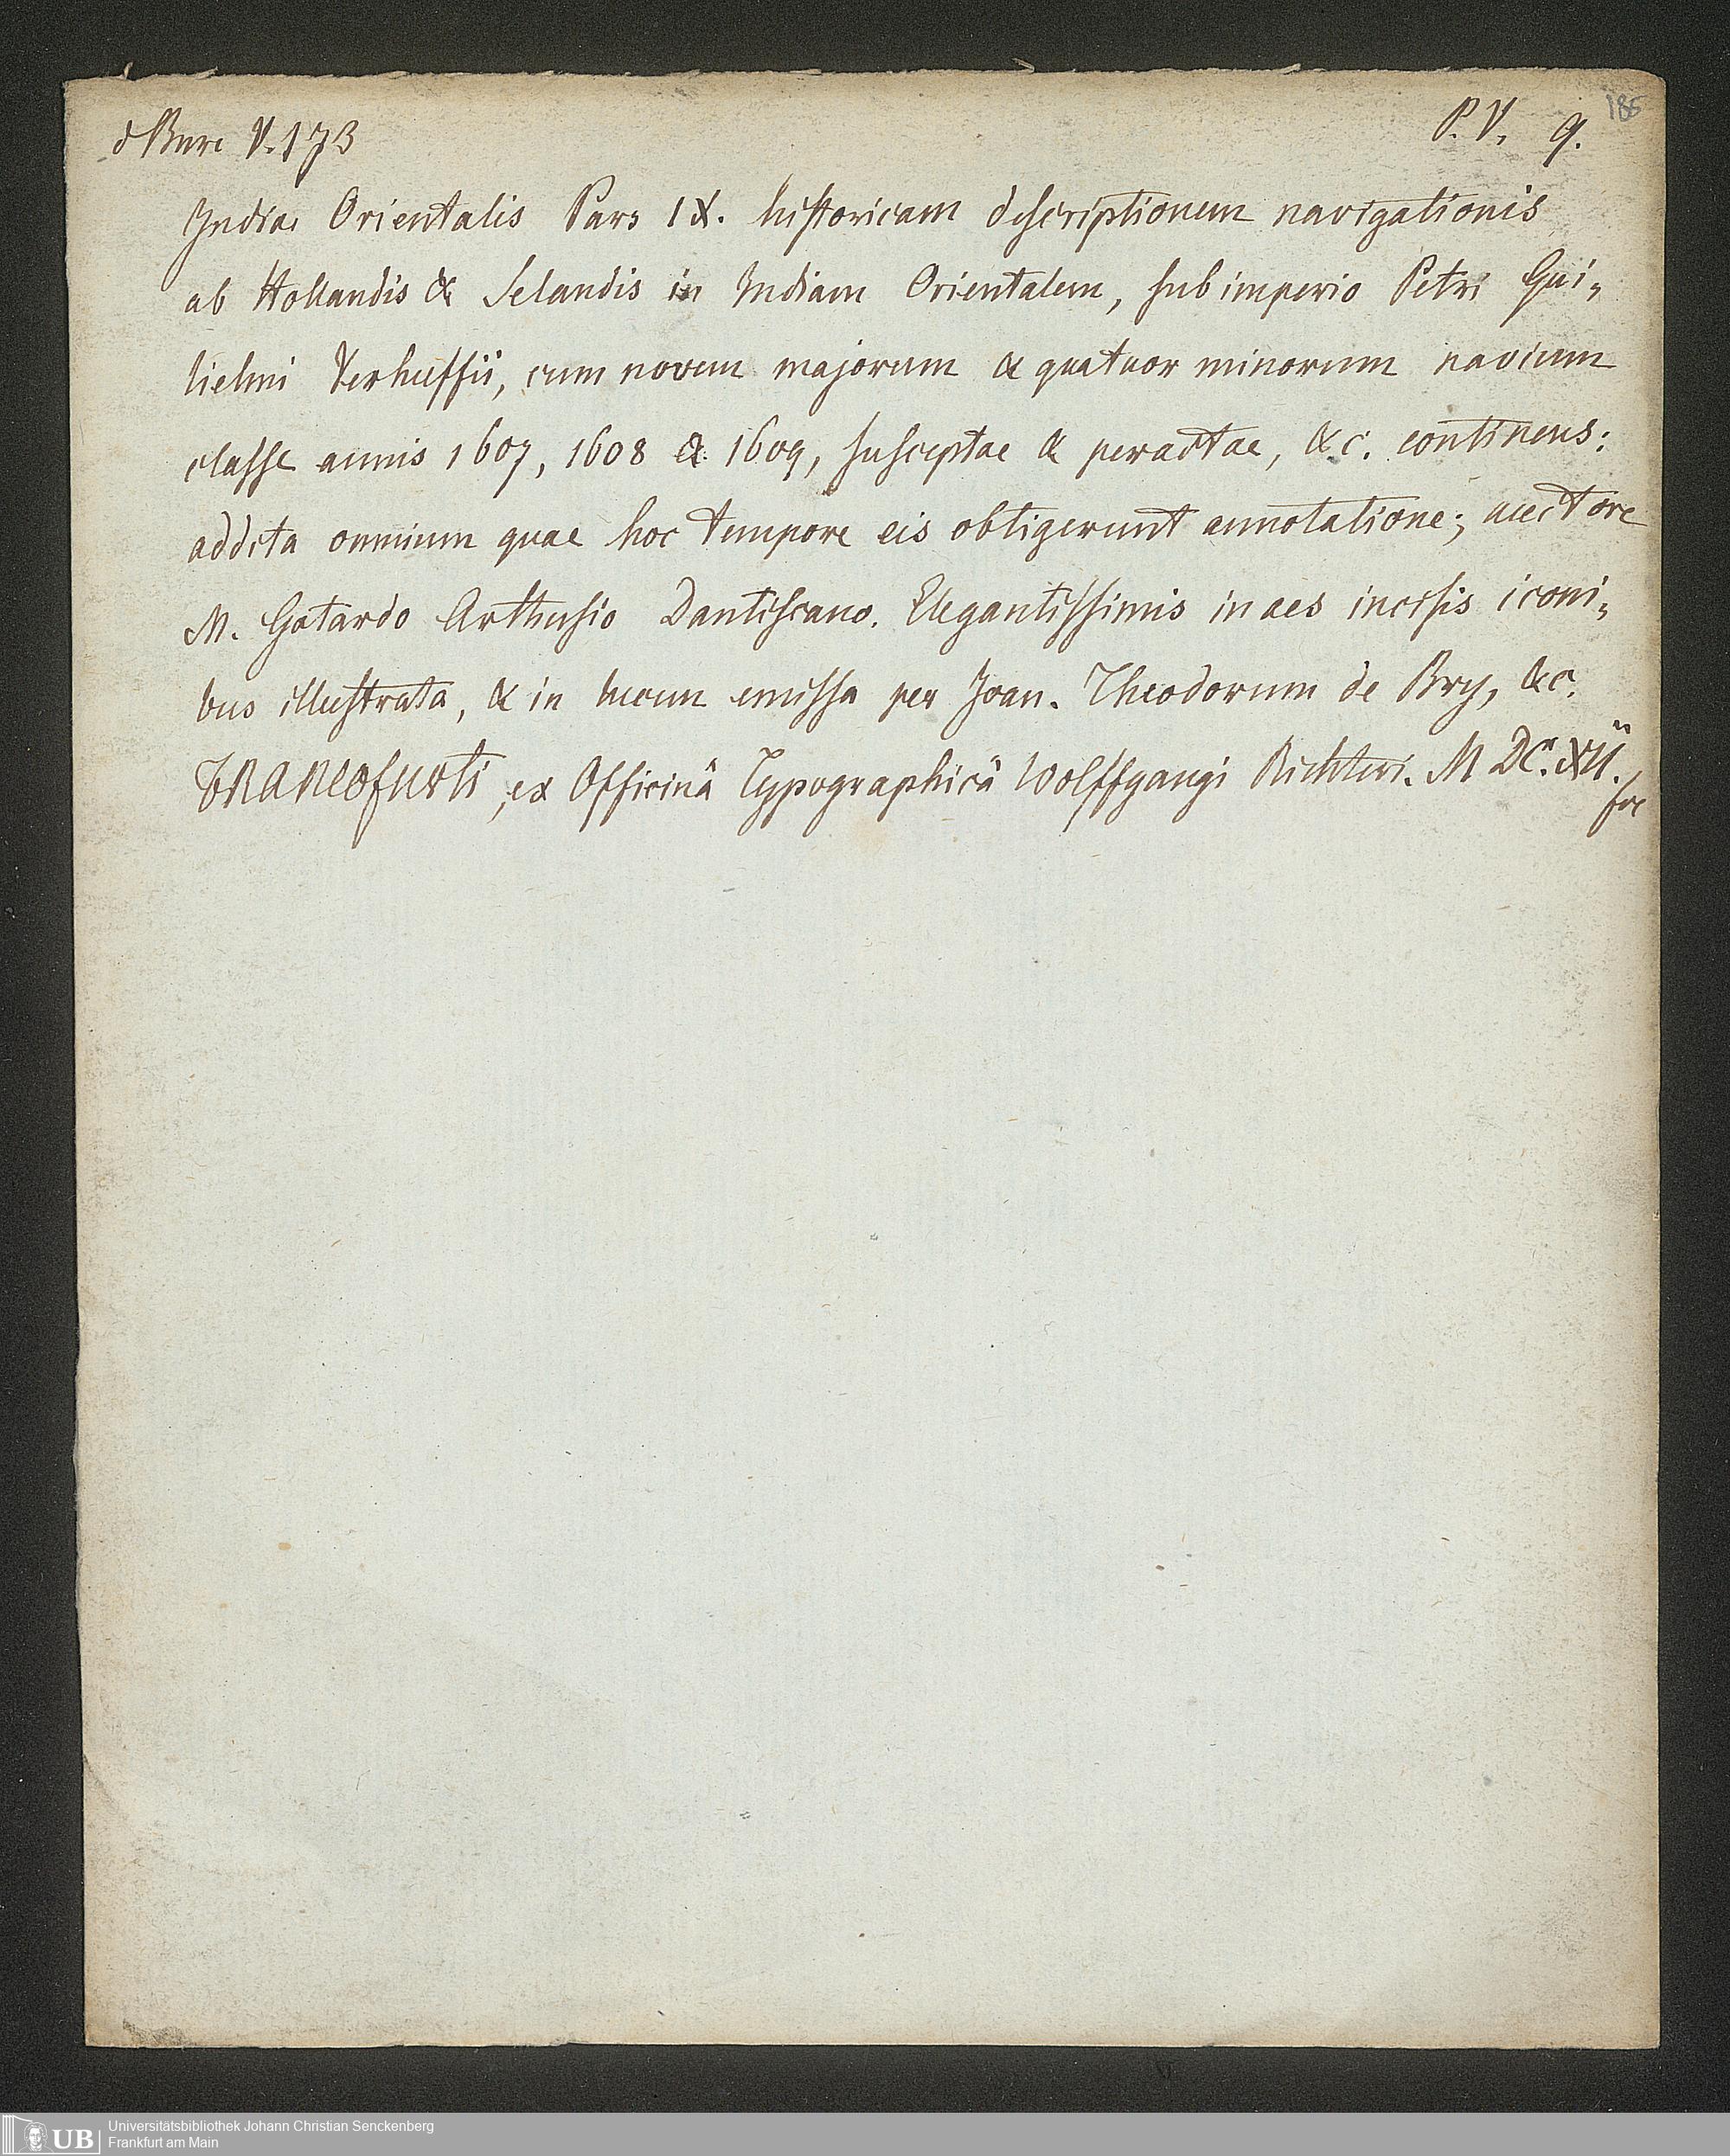 d Bure V. 173
P. V. 9.
185
Indiae Orientalis Pars IX. historicam descriptionem navigationis
ab Hollandis & Selandis in Indiam Orientalem, sub imperio Petri Gui-
lielmi Verhuffii, cum novem majorum & quatuor minorum navium
classe annis 1607, 1608 & 1609, susceptae & peractae, &c. continens:
addita omnium quae hoc tempore eis obtigerunt annotatione; auctore
M. Gotardo Arthusio Dantiscano. Elegantissimis in aes incisis iconi-
bus illustrata, & in lucem emissa per Joan. Theodorum de Bry, &c.
FRANCofurti, ex Officinâ Typographicâ Wolffgangi Richteri. M DC. XII.
fol
UB
Universitätsbibliothek Johann Christian Senckenberg
Frankfurt am Main